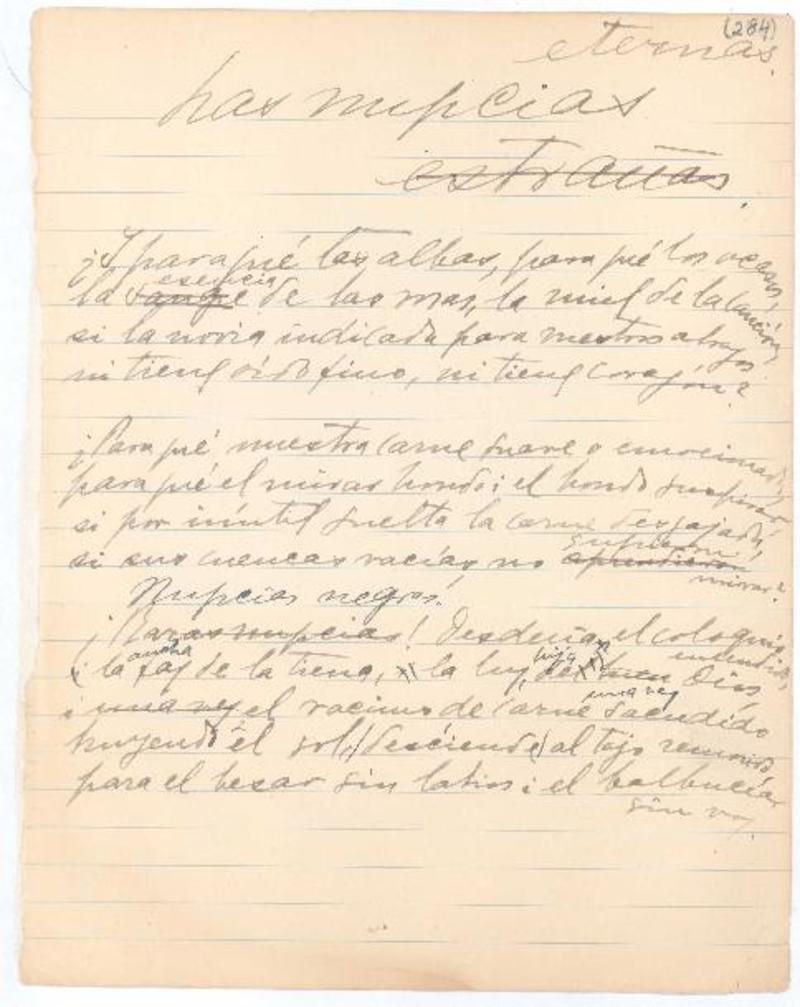 (284)
eternas.
Las nupcias
estrañas.
¿I para qué las albas, para qué los ocasos,
esencia
la sangre de las rosas, la miel de la canción,
si la novia indicada para nuestros abrazos
ni tiene oído fino, ni tiene corazón?
¿Para qué nuestra carne suave o
para qué el mirar hondo i el hondo suspirar
si por inútil suelta la carne desgajada,
supieron
si sus cuencas vacías no aprendieron
mirar?
Nupcias negras!
¡Raras nupcias! Desdeñan el coloquio
encendido,
ancha
i la faz de la tierra, la luz, hija de Dios
una vez
i una vez el racimo de carne sacudido
huyendo el sol, (desciende) al tajo removido
para el besar sin labios i el balbucear
sin voz.